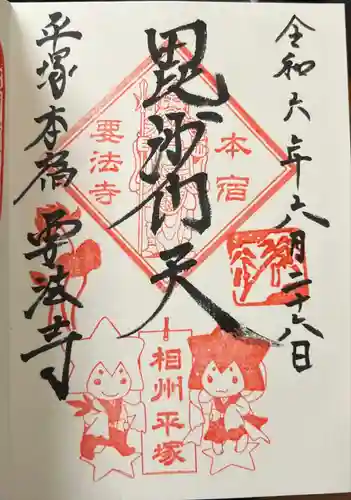 令和六年六月二十六日
本宿
毘沙門天
要法寺
平塚本宿 要法寺
相州平塚